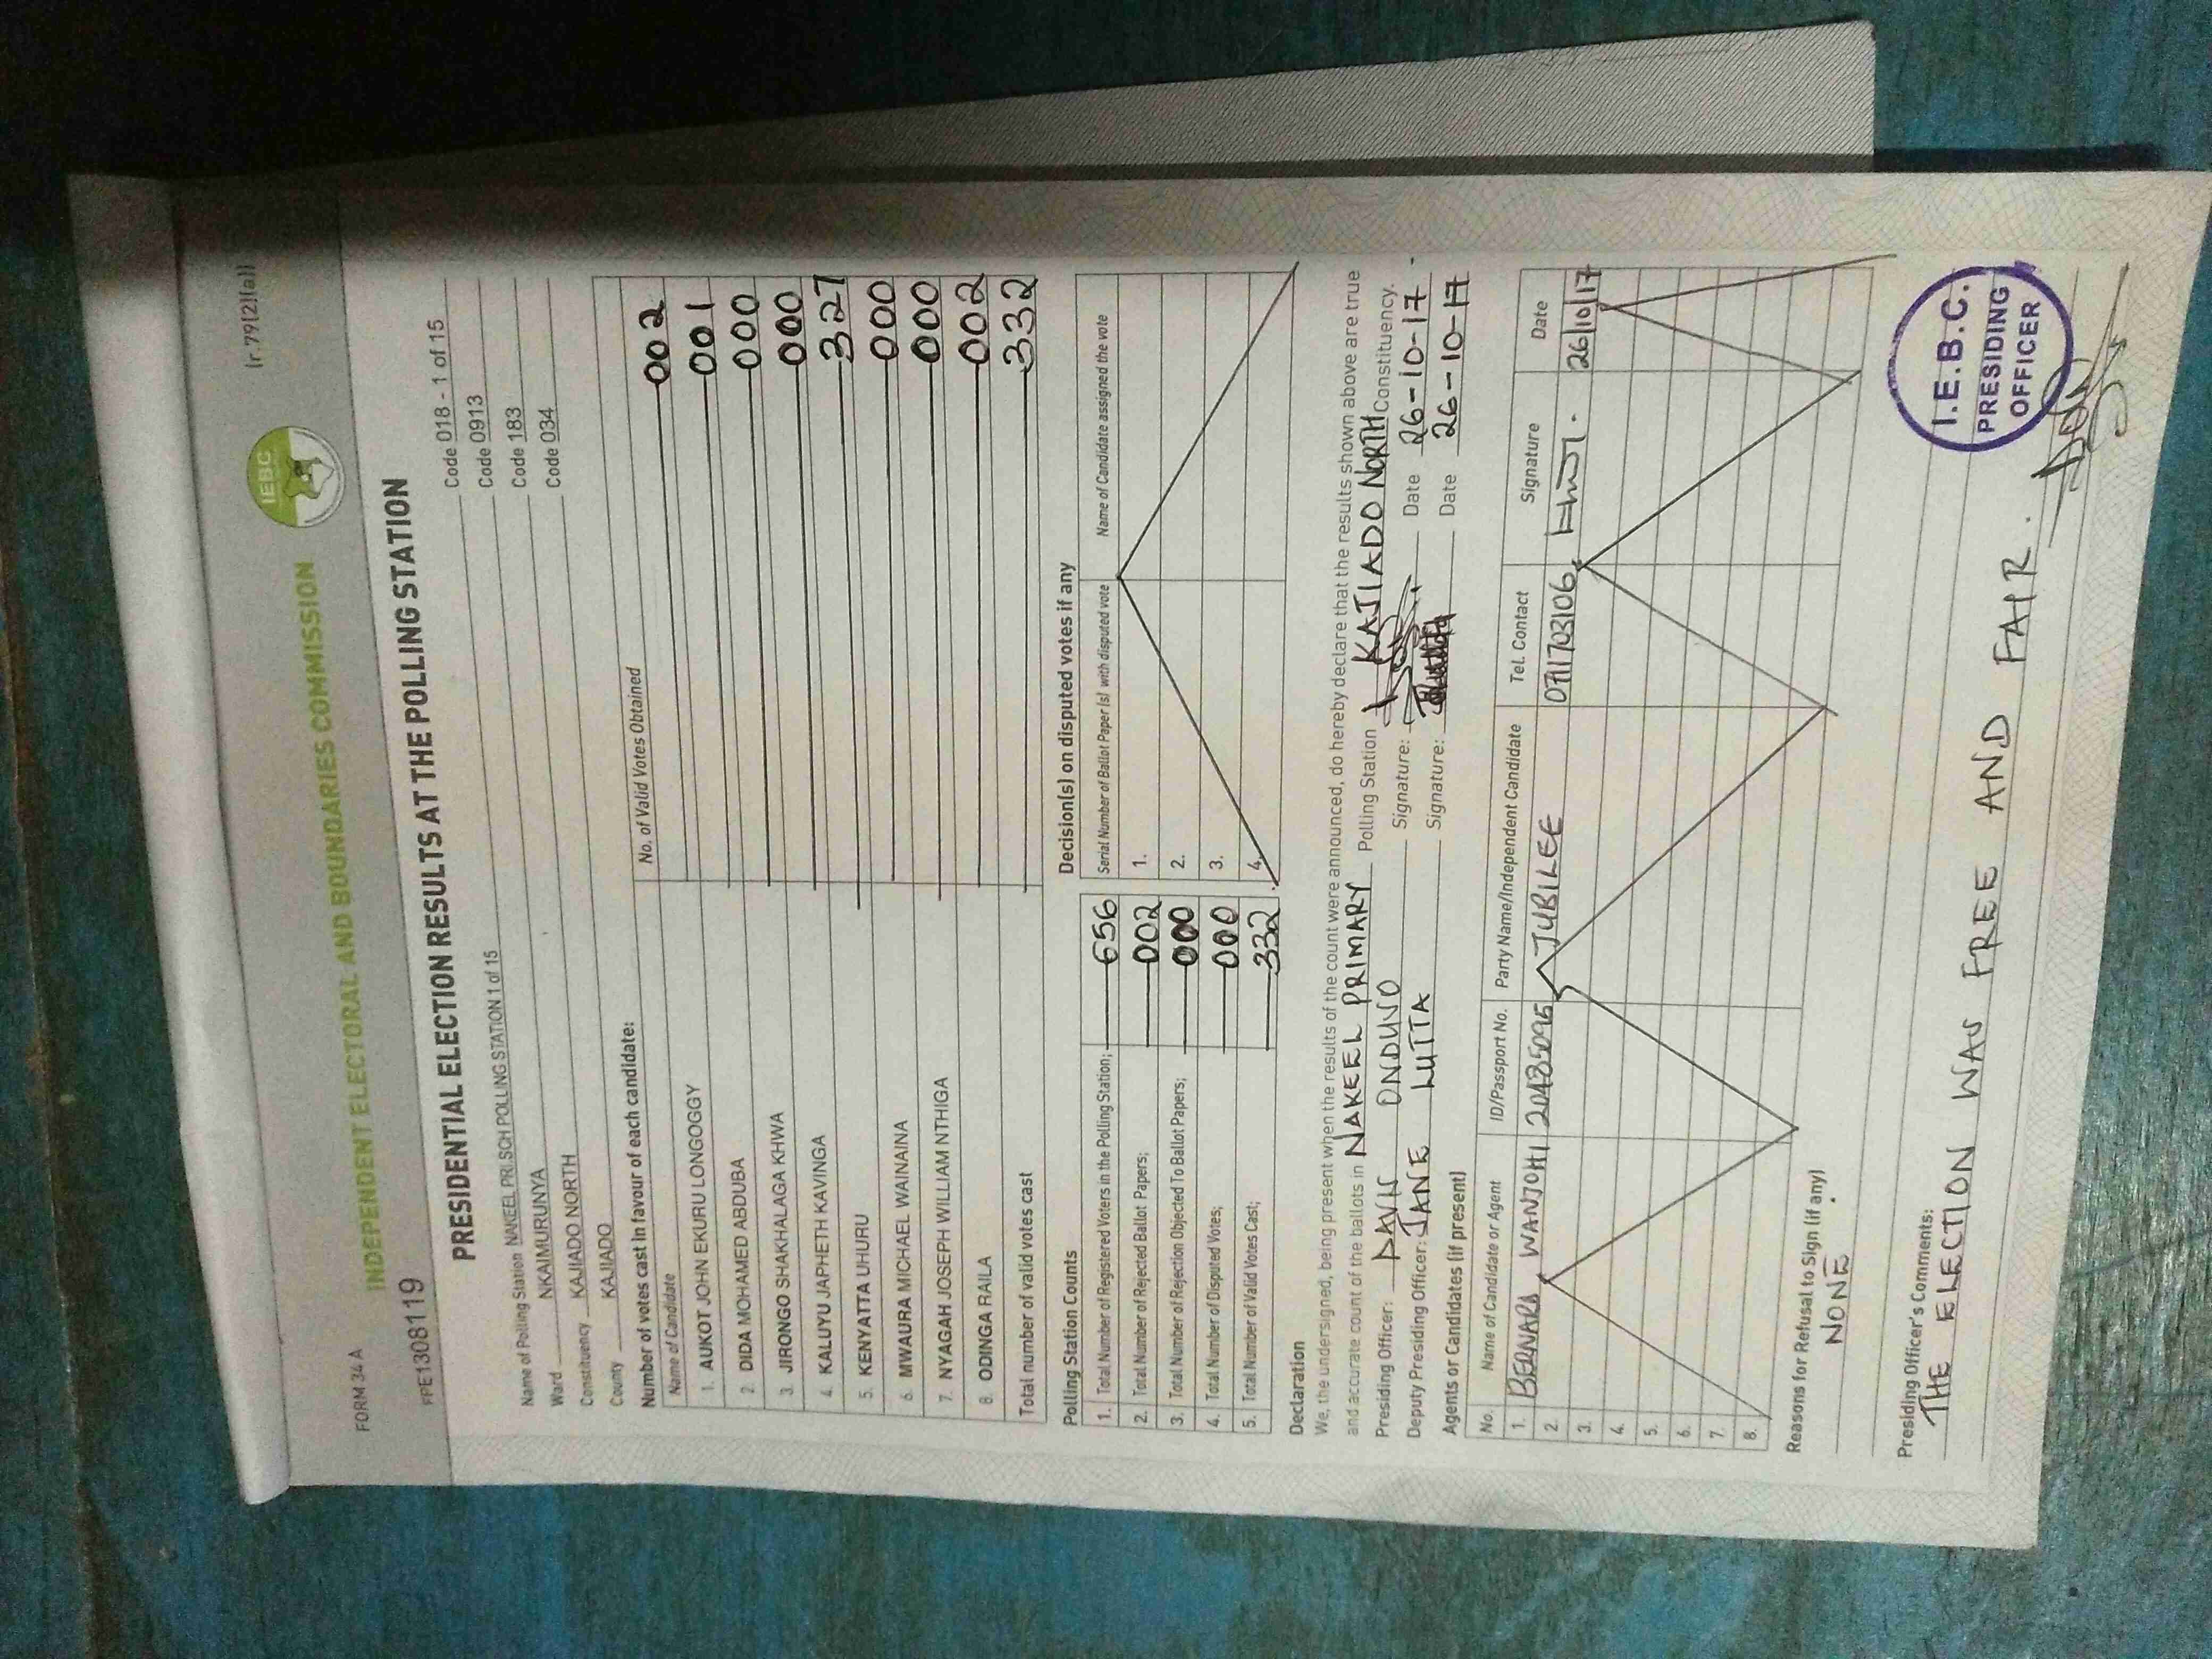 FORM 34 A
(r. 79(2)(a))
INDEPENDENT ELECTORAL AND BOUNDARIES COMMISSION
IEBC
FPE1308119
PRESIDENTIAL ELECTION RESULTS AT THE POLLING STATION
Name of Polling Station NAKEEL PRI.SCH POLLING STATION 1 of 15 Code 018 - 1 of 15
Ward NKAIMURUNYA Code 0913
Constituency KAJIADO NORTH Code 183
County KAJIADO Code 034
Number of votes cast in favour of each candidate:
Name of Candidate No. of Valid Votes Obtained
1. AUKOT JOHN EKURU LONGOGGY 002
2. DIDA MOHAMED ABDUBA 001
3. JIRONGO SHAKHALAGA KHWA 000
4. KALUYU JAPHETH KAVINGA 000
5. KENYATTA UHURU 327
6. MWAURA MICHAEL WAINAINA 000
7. NYAGAH JOSEPH WILLIAM NTHIGA 000
8. ODINGA RAILA 002
Total number of valid votes cast 332
Polling Station Counts
1. Total Number of Registered Voters in the Polling Station; 656
2. Total Number of Rejected Ballot Papers; 002
3. Total Number of Rejection Objected To Ballot Papers; 000
4. Total Number of Disputed Votes; 000
5. Total Number of Valid Votes Cast; 332
Decision(s) on disputed votes if any
Serial Number of Ballot Paper (s) with disputed vote Name of Candidate assigned the vote
1.
2.
3.
4.
Declaration
We, the undersigned, being present when the results of the count were announced, do hereby declare that the results shown above are true
and accurate count of the ballots in NAKEEL PRIMARY Polling Station KAJIADO NORTH Constituency.
Presiding Officer: Signature: Date 26-10-17
Deputy Presiding Officer: JANE LUTTA Signature: Date 26-10-17
Agents or Candidates (if present)
No. Name of Candidate or Agent ID/Passport No. Party Name/Independent Candidate Tel. Contact Signature Date
1. BERNARD WANJOHI 20485095 JUBILEE 0711703106 26/10/17
2.
3.
4.
5.
6.
7.
8.
Reasons for Refusal to Sign (if any)
NONE
Presiding Officer's Comments:
THE ELECTION WAS FREE AND FAIR.
I.E.B.C.
PRESIDING
OFFICER